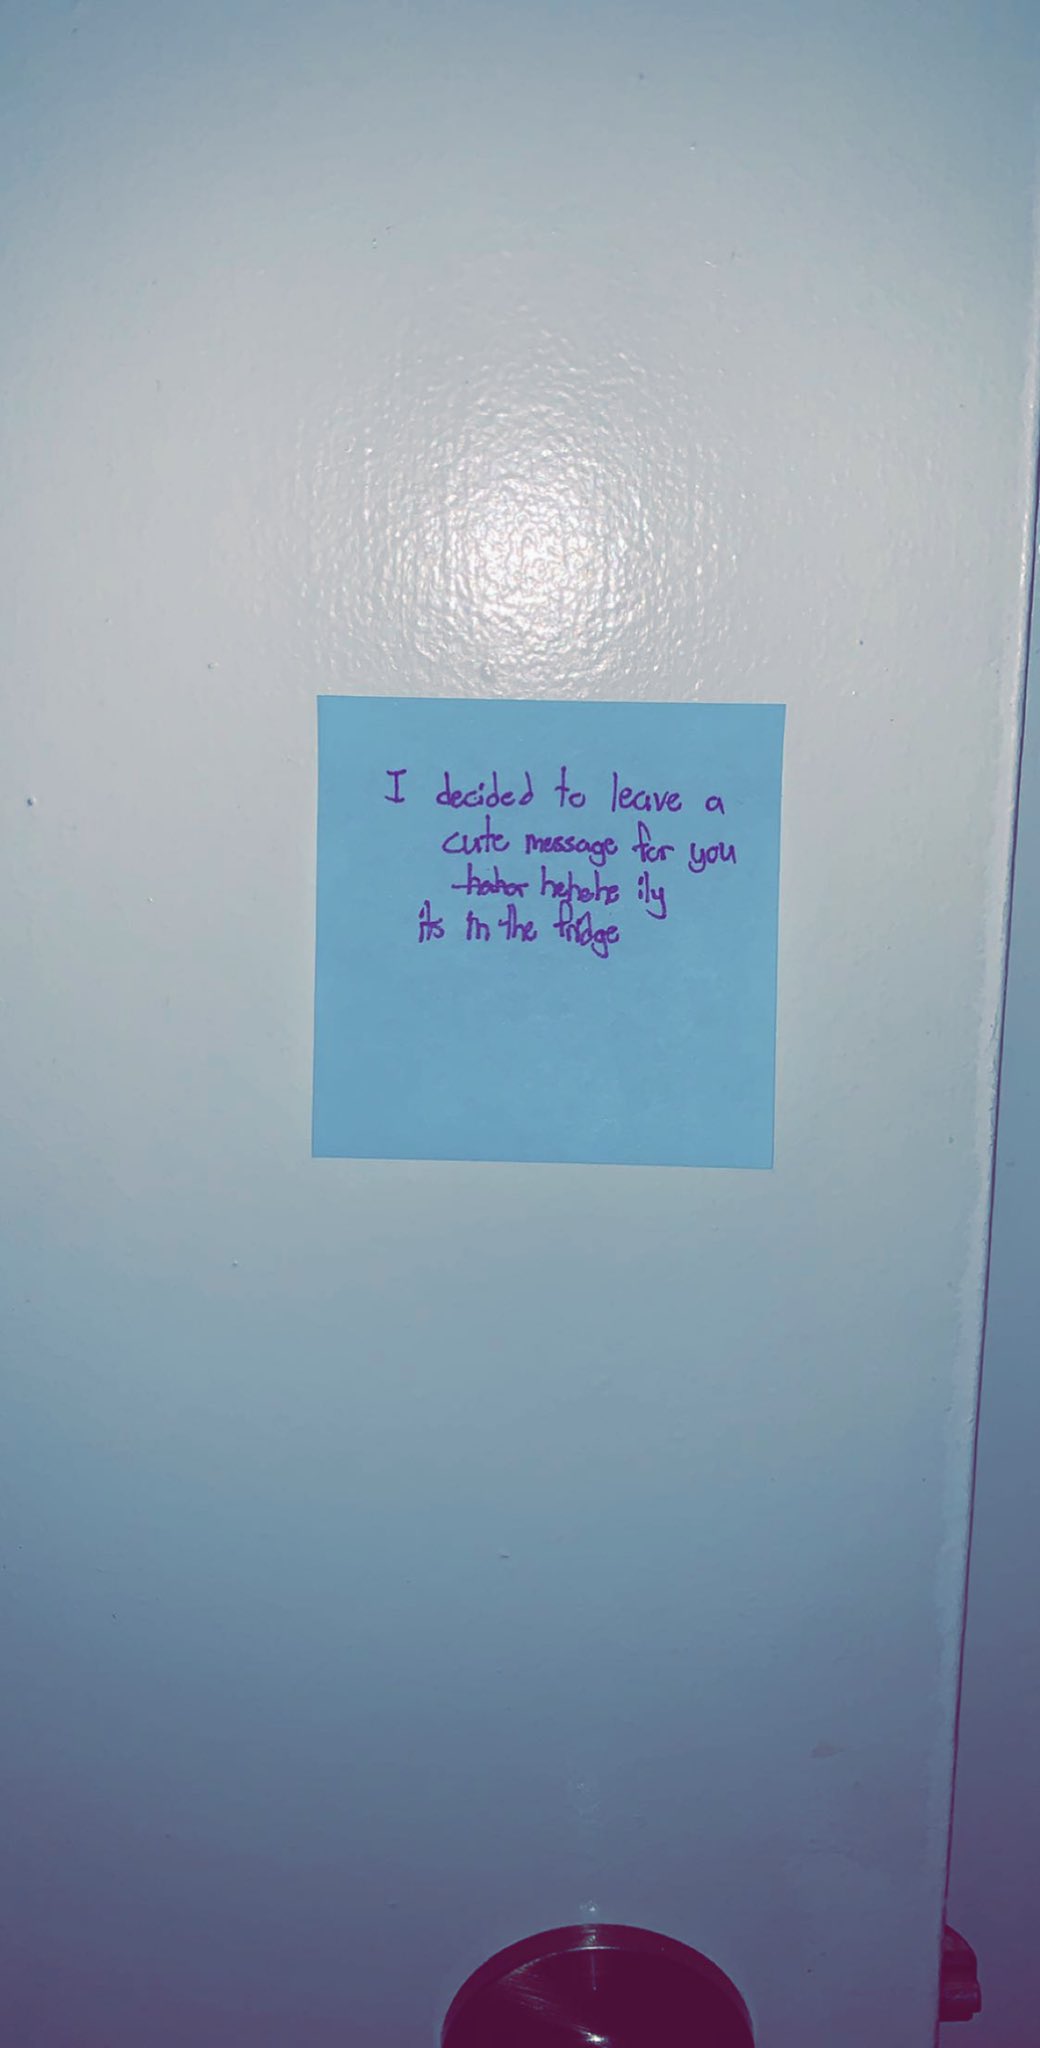 I decided to leave a
cute message for you
hehehe ily
its in the fridge